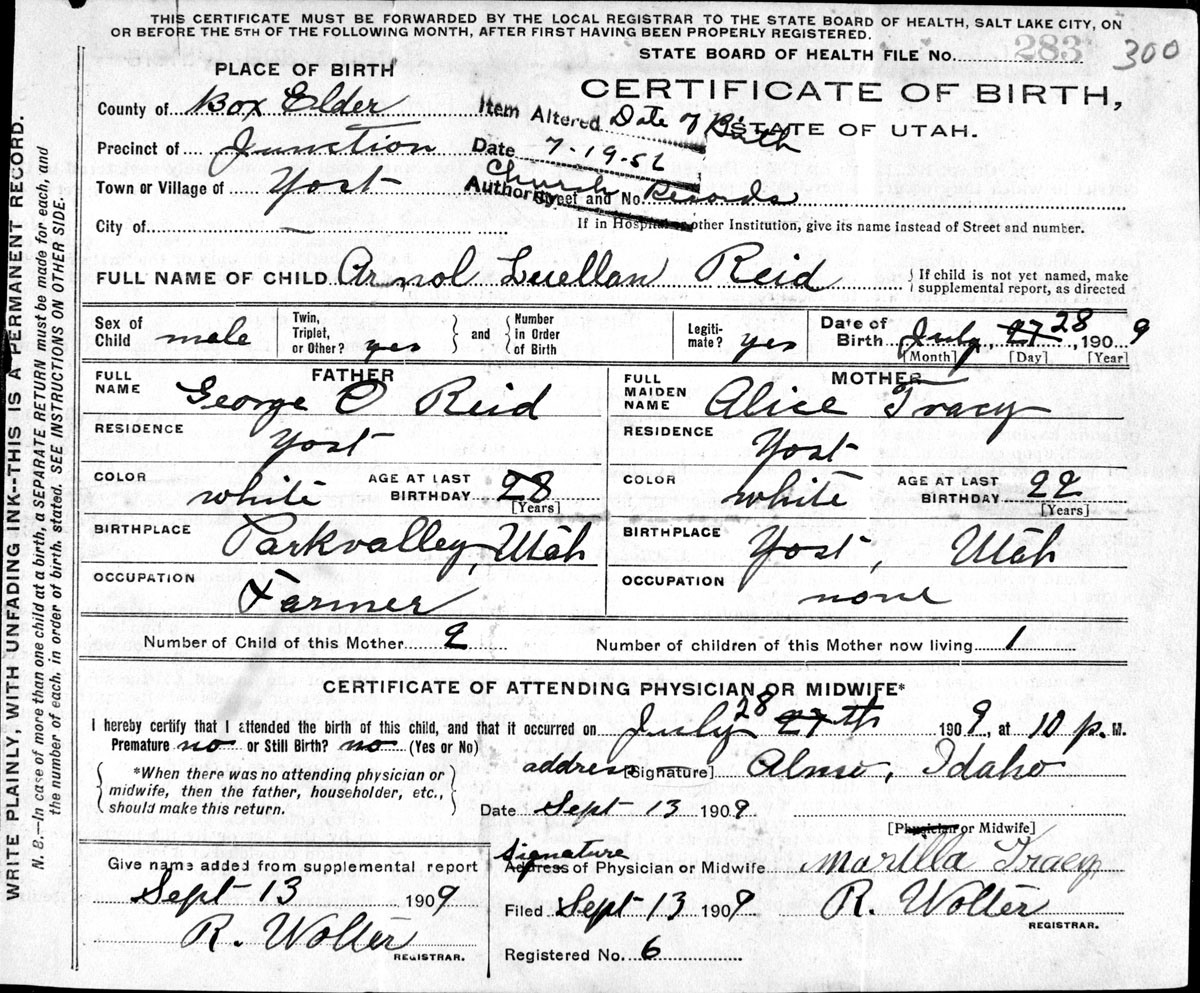 THIS CERTIFICATE MUST BE FORWARDED BY THE LOCAL REGISTRAR TO THE STATE BOARD OF HEALTH, SALT LAKE CITY, ON
OR BEFORE THE 5TH OF THE FOLLOWING MONTH, AFTER FIRST HAVING BEEN PROPERLY REGISTERED.
STATE BOARD OF HEALTH FILE No. 283 300
PLACE OF BIRTH
CERTIFICATE OF BIRTH,
County of Box Elder
Item Altered Date of Birth
STATE OF UTAH.
Precinct of Junction
Date 7-19-52
Town or Village of Yost
Authority Church Records
Street and No.
City of —
If in Hospital or other Institution, give its name instead of Street and number.
FULL NAME OF CHILD Arnol Luellan Reid
{If child is not yet named, make
supplemental report, as directed
Sex of Child male
Twin, Triplet, or Other? yes
and
Number in Order of Birth
Legiti- mate? yes
Date of Birth July, 27 28, 1909
[Month] [Day] [Year]
FATHER
FULL NAME George O Reid
RESIDENCE Yost
COLOR white
AGE AT LAST BIRTHDAY 28
[Years]
BIRTHPLACE Parkvalley, Utah
OCCUPATION Farmer
MOTHER
FULL MAIDEN NAME Alice Tracy
RESIDENCE Yost
COLOR white
AGE AT LAST BIRTHDAY 22
[Years]
BIRTHPLACE Yost, Utah
OCCUPATION none
Number of Child of this Mother 2
Number of children of this Mother now living 1
CERTIFICATE OF ATTENDING PHYSICIAN OR MIDWIFE*
I hereby certify that I attended the birth of this child, and that it occurred on July 28 27th 1909, at 10 p. M.
Premature no or Still Birth? no (Yes or No)
{*When there was no attending physician or
midwife, then the father, householder, etc.,
should make this return.}
address [Signature] Almo, Idaho
Date Sept 13 1909
[Physician or Midwife]
Give name added from supplemental report
Sept 13 1909
R. Wolter
REGISTRAR.
Signature
Address of Physician or Midwife Marilla Tracy
Filed Sept 13 1909 R. Wolter
REGISTRAR.
Registered No. 6
WRITE PLAINLY, WITH UNFADING INK--THIS IS A PERMANENT RECORD.
N. B.—In case of more than one child at a birth, a SEPARATE RETURN must be made for each, and
the number of each, in order of birth, stated. SEE INSTRUCTIONS ON OTHER SIDE.